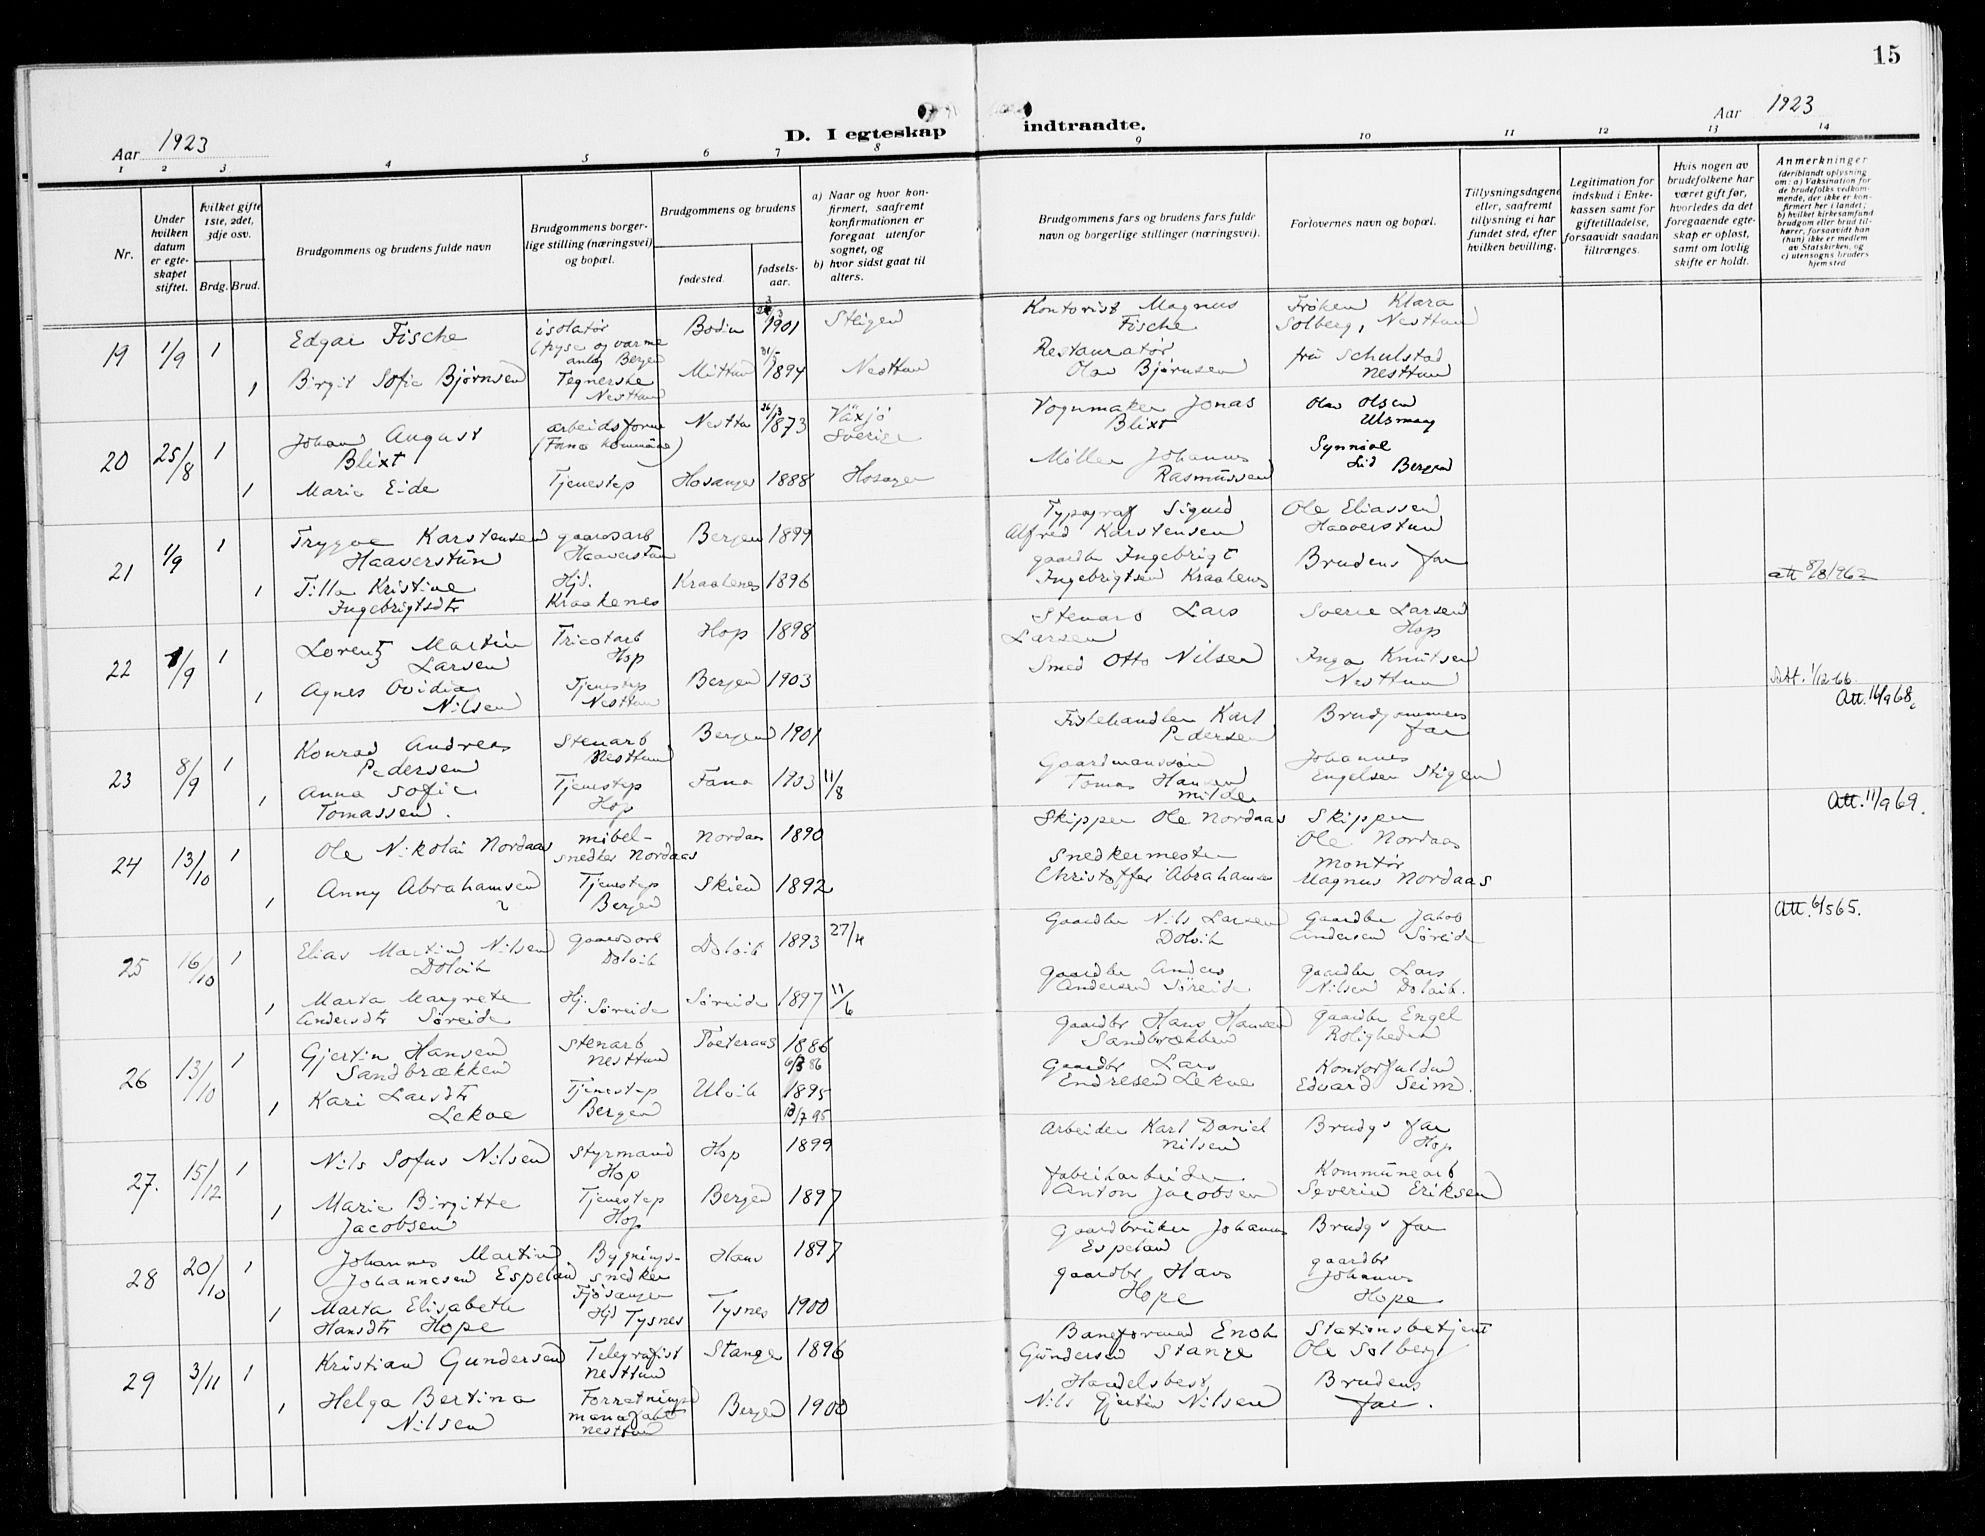 15
Aar 1923
D. I egteskap indtraadte.
Aar 1923
1 2 3 4 5 6 7 8 9 10 11 12 13 14
Nr.
Under hvilken datum er egteskapet stiftet.
hvilket gifte 1ste, 2det, 3dje osv.
Brdg. Brud.
Brudgommens og brudens fulde navn
Brudgommens borgerlige stilling (næringsvei) og bopæl.
Brudgommens og brudens
fødested.
fødselsaar.
a) Naar og hvor konfirmert, saafremt konfirmationen er foregaat utenfor sognet, og
b) hvor sidst gaat til alters.
Brudgommens fars og brudens fars fulde navn og borgerlige stillinger (næringsvei).
Forlovernes navn og bopæl.
Tillysningsdagene eller, saafremt tillysning ei har fundet sted, efter hvilken bevilling.
Legitimation for indskud i Enkekassen samt for giftetilladelse, forsaavidt saadan tiltrænges.
Hvis nogen av brudefolkene har været gift før, hvorledes da det foregaaende egteskap er opløst, samt om lovlig skifte er holdt.
Anmerkninger
(deriblandt oplysning om: a) Vaksination for de brudefolks vedkommende, der ikke er konfirmert her i landet; b) hvilket kirkesamfund brudgom eller brud tilhører, forsaavidt han (hun) ikke er medlem av Statskirken, og c) utensogns bruders hjemsted
19 1/9 1 Edgar Fische isolatør (fryse og varme anleg Bergen Bodin 1901 Steigen Kontorist Magnus Fische Frøken Klara Solberg, Nesttun
1 Birgit Sofie Bjørnsen Tegnerske Nesttun Mittun 1894 Nesttun Restauratør Olav Bjørnsen fru Schulstad Nesttun
20 25/8 1 Johan August Blixt arbeidsform (Fana kommune) Nesttun 26/3 1873 Växjö Sverige Vognmaker Jonas Blixt Olav Olsen Ulsmaag
1 Marie Eide Tjenestep Hosanger 1888 Hosanger Møller Johannes Rasmussen Synnøve Lid Bergen
21 1/9 1 Trygve Karstensen Haaverstun gaardsarb Haaverstun Bergen 1899 Typograf Sigurd Alfred Karstensen Ole Eliassen Haaverstun
1 Tilla Kristine Ingebrigtsdtr Hj. Kraakenes Kraakenes 1896 gaardbr Ingebrigt Ingebrigtsen Kraakenes Brudens far att 8/8 1962
22 1/9 1 Lorentz Martin Larsen Tricotarb Hop Hop 1898 Stenarb Lars Larsen Sverre Larsen Hop
1 Agnes Ovidia Nilsen Tjenestep Nesttun Bergen 1903 Smed Otto Nilsen Inga Knutsen Nesttun Att. 1/12 66.
Att. 16/9 68.
23 8/9 1 Konrad Andreas Pedersen Stenarb Nesttun Bergen 1901 Fiskehandler Karl Pedersen Brudgommens far
1 Anna Sofie Tomassen. Tjenestep Hop Fana 1903 11/8 Gaardmanssøn Tomas Hansen Milde Johannes Engelsen Stigen
Att. 11/9 69.
24 13/10 1 Ole Nikolai Nordaas møbelsnedker Nordaas Nordaas 1890 Skipper Ole Nordaas Skipper Ole Nordaas
1 Anny Abrahamsen Tjenestep Bergen Skien 1892 Snedkermester Christoffer Abrahamsen montør Magnus Nordaas
Att. 6/5 65.
25 16/10 1 Elias Martin Nilsen Dolvik gaardsarb Dolvik Dolvik 1893 27/4 Gaardbr Nils Larsen Dolvik Gaardbr Jakob Andersen Søreide
1 Marta Margrete Andersdtr Søreide Hj. Søreide Søreide 1897 11/6 gaardbr Anders Andersen Søreide gaardbr Lars Nilsen Dolvik.
26 13/10 1 Gjertin Hansen Sandbrækken Stenarb Nesttun Tveteraas 1886 6/3 86 gaardbr Hans Hansen Sandbrækken gaardbr Engel Roligheden
1 Kari Larsdtr Lekve Tjenestep Bergen Ulvik 1895 12/7 95 Gaardbr Lars Endresen Lekve Kontorfuldm Edvard Seim.
27. 15/12 1 Nils Sofus Nilsen Styrmand Hop Hop 1899 Arbeider Karl Daniel Nilsen Brudgs far Hop
1 Marie Birgitte Jacobsen Tjenestep Hop Bergen 1897 fabrikarbeider Anton Jacobsen Kommunearb Severin Eriksen
28 20/10 1 Johannes Martin Johannesen Espeland Bygningssnedker Fjøsanger Haus 1897 gaardbruker Johannes Espeland Brudgs far
1 Marta Elisabeth Hansdtr Hope Hj Tysnes Tysnes 1900 gaardbr Hans Hope gaardbr Johannes Hope
29 3/11 1 Kristian Gundersen Telegrafist Nesttun Stange 1896 Baneformand Enok Gundersen Stange Stationsbetjent Ole Solberg
1 Helga Bertina Nilsen Forretnings Nesttun Bergen 1900 Handelsbest Nils Gjertin Nilsen Brudens far.